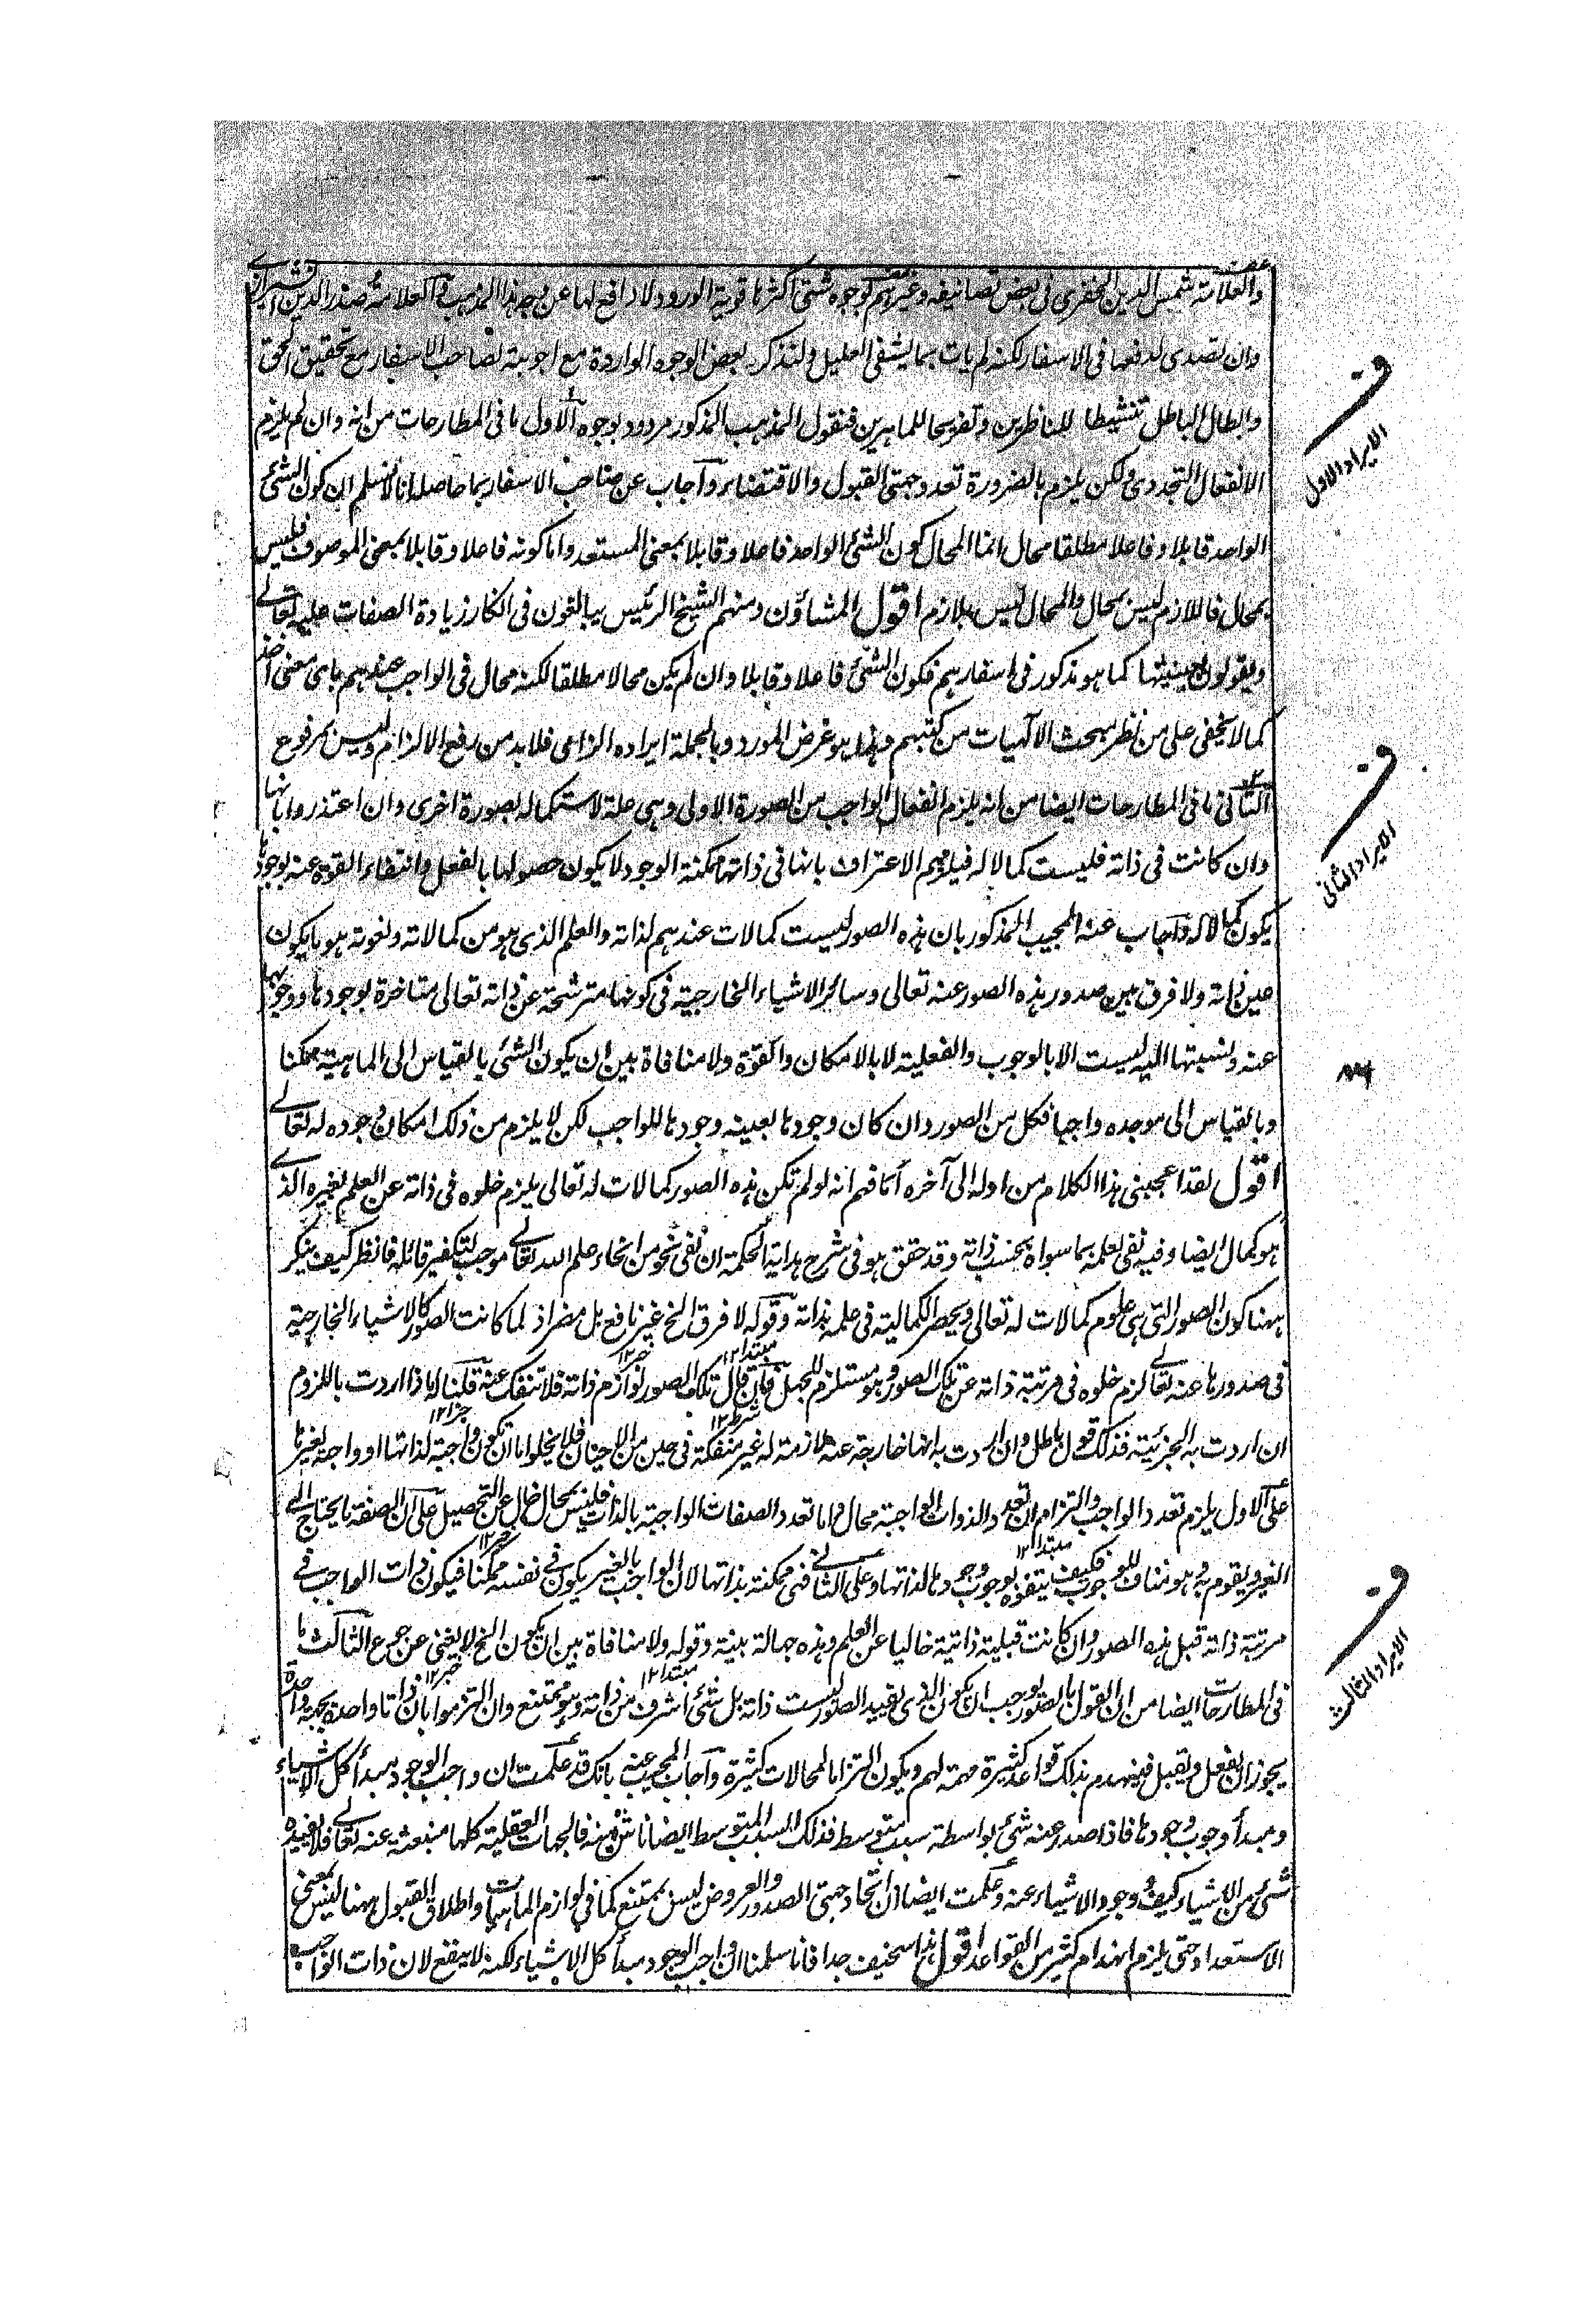 والعلامة شمس الدين الخفرى فى بعض تصانيفه وغيرهم بوجوه شتى اكثرها قوية الورود لا دافع لها عن وجه هذا المذهب والعلامة صدر الدين الشيرازى
وان تصدى لدفعها فى الاسفار لكنه لم يات بما يشفى العليل ولنذكر بعض الوجوه الواردة مع اجوبة لصاحب الاسفار مع تحقيق الحق
وابطال الباطل تنشيطا للناظرين وتفريحا للماهرين فنقول المذهب المذكور مردود بوجوه الاول ما فى المطارحات من انه وان لم يلزم
الانفعال التجددى ولكن يلزم بالضرورة تعدد جهتى القبول والاقتضاء واجاب عنه صاحب الاسفار بما حاصله انا لا نسلم ان كون الشئ
الواحد قابلا وفاعلا مطلقا محال انما المحال كون الشئ الواحد فاعلا وقابلا بمعنى المستعد واما كونه فاعلا وقابلا بمعنى الموصوف فليس
بمحال فاللازم ليس بمحال والمحال ليس بلازم اقول المشاؤن ومنهم الشيخ الرئيس يبالغون فى انكار زيادة الصفات عليه تعالى
ويقولون بعينيتها كما هو مذكور فى اسفارهم فكون الشئ فاعلا وقابلا وان لم يكن محالا مطلقا لكنه محال فى الواجب عندهم باى معنى اخذ
كما لا يخفى على من نظر بحث الآلهيات من كتبهم وهذا هو غرض المورد وبالجملة ايراده الزامى فلا بد من رفع الالزام وليس بمرفوع
الثانى ما فى المطارحات ايضا من انه يلزم انفعال الواجب من الصورة الاولى وهى علة لاستكماله بصورة اخرى وان اعتذروا بانها
وان كانت فى ذاته فليست كمالا له فيلزمهم الاعتراف بانها فى ذاتها ممكنة الوجود لا يكون حصولها بالفعل وانتفاء القوة عنه بوجودها
يكون كمالا له واجاب عنه المجيب المذكور بان هذه الصور ليست كمالات عندهم لذاته والعلم الذى هو من كمالاته ونعوته هو ما يكون
عين ذاته ولا فرق بين صدور هذه الصور عنه تعالى وسائر الاشياء الخارجية فى كونها مترشحة عن ذاته تعالى متاخرة بوجودها ووجوبها
عنه ونسبتها اليه ليست الا بالوجوب والفعلية لا بالامكان والقوة ولا منافاة بين ان يكون الشئ بالقياس الى الماهية ممكنا
وبالقياس الى موجده واجبا فكل من الصور وان كان وجودها بعينه وجودها للواجب لكن لا يلزم من ذلك امكان وجوده له تعالى
اقول لقد اعجبنى هذا الكلام من اوله الى آخره اما فهم انه لو لم تكن هذه الصور كمالات له تعالى يلزم خلوه فى ذاته عن العلم بغيره الذى
هو كمال ايضا وفيه نفى لعلمه بما سواه بحسب ذاته وقد حقق هو فى شرح هداية الحكمة ان نفى نحو من انحاء علم الله تعالى موجب لتكفير قائله فانظر كيف ينكر
ههنا كون الصور التى هى علوم كمالات له تعالى ويحصر الكمالية فى علمه بذاته وقوله لا فرق الخ غير نافع بل مضر اذ لما كانت الصور كالاشياء الخارجية
فى صدورها عنه تعالى لزم خلوه فى مرتبة ذاته عن تلك الصور وهو مستلزم للجهل فان قال تلك الصور لوازم ذاته فلا تنفك عنه قلنا له ماذا اردت باللزوم
ان اردت به الجزئية فذلك قول باطل وان اردت به انها خارجة عنه لازمة له غير منفكة فى حين من الاحيان فلا يخلو اما ان تكون واجبة لذاتها او واجبة لغيرها
على الاول يلزم تعدد الواجب والتزام ان تعدد الذوات الواجبة محال واما تعدد الصفات الواجبة بالذات فليس بمحال خال عن التحصيل على ان الصفة ما يحتاج الى
الغير ويقوم به وهو مناف للوجوب فكيف يتفوه بوجوب وجودها لذاتها وعلى الثانى فهى ممكنة بذاتها لان الواجب بالغير يكون فى نفسه ممكنا فيكون ذات الواجب فى
مرتبة ذاته قبل هذه الصور وان كانت قبلية ذاتية خاليا عن العلم وهذه جهالة بينة وقوله ولا منافاة بين ان يكون الخ لا يغنى عن جوع الثالث ما
فى المطارحات ايضا من ان القول بالصور يوجب ان يكون الذى يفيد الصور ليست ذاته بل شئ اشرف من ذاته وهو ممتنع وان التزموا بان ذاتا واحدة بجهة واحدة
يجوز ان يفعل ويقبل فينهدم بذلك قواعد كثيرة مهمة لهم ويكون التزاما لمحالات كثيرة واجاب المجيب عنه بانك قد علمت ان واجب الوجود مبدأ كل الاشياء
ومبدأ وجوب وجودها فاذا صدر عنه شئ بواسطة سبب متوسط فذلك السبب المتوسط ايضا ناش منه فالجهات العقلية كلها منبعثة عنه تعالى فلا يفيده
شئ من الاشياء كيف وجود الاشياء عنه وعلمت ايضا ان اتحاد جهتى الصدور والعروض ليس بممتنع كما فى لوازم الماهيات واطلاق القبول ههنا ليس بمعنى
الاستعداد حتى يلزم انهدام كثير من القواعد اقول هذا سخيف جدا فانا سلمنا ان واجب الوجود مبدأ كل الاشياء لكنه لا ينفع لان ذات الواجب
ف
الايراد الاول
ف
الايراد الثانى
ف
الايراد الثالث
مبتدا ١٢
خبر ١٢
شرط ١٢
جزا ١٢
مبتدا ١٢
خبر ١٢
مبتدا ١٢
خبر ١٢